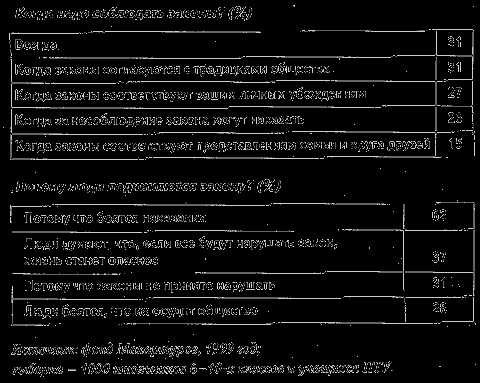 Когда надо соблюдать законы? (%)
Всегда 31
Когда законы согласуются с традициями общества 31
Когда законы соответствуют вашим личным убеждениям 27
Когда за несоблюдение закона могут наказать 23
Когда законы соответствуют представлениям семьи и круга друзей 15
Почему люди подчиняются закону? (%)
Потому что боятся наказания 62
Люди думают, что, если все будут нарушать закон,
жизнь станет опаснее 37
Потому что законы не принято нарушать 31
Люди боятся, что их осудит общество 26
Источник: Фонд Макартуров, 1999 год;
выборка — 1000 школьников 6–10-х классов и учащихся ПТУ.